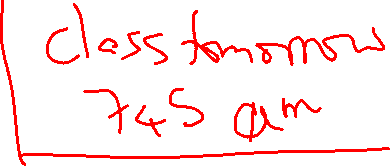 class tomorrow
745 am